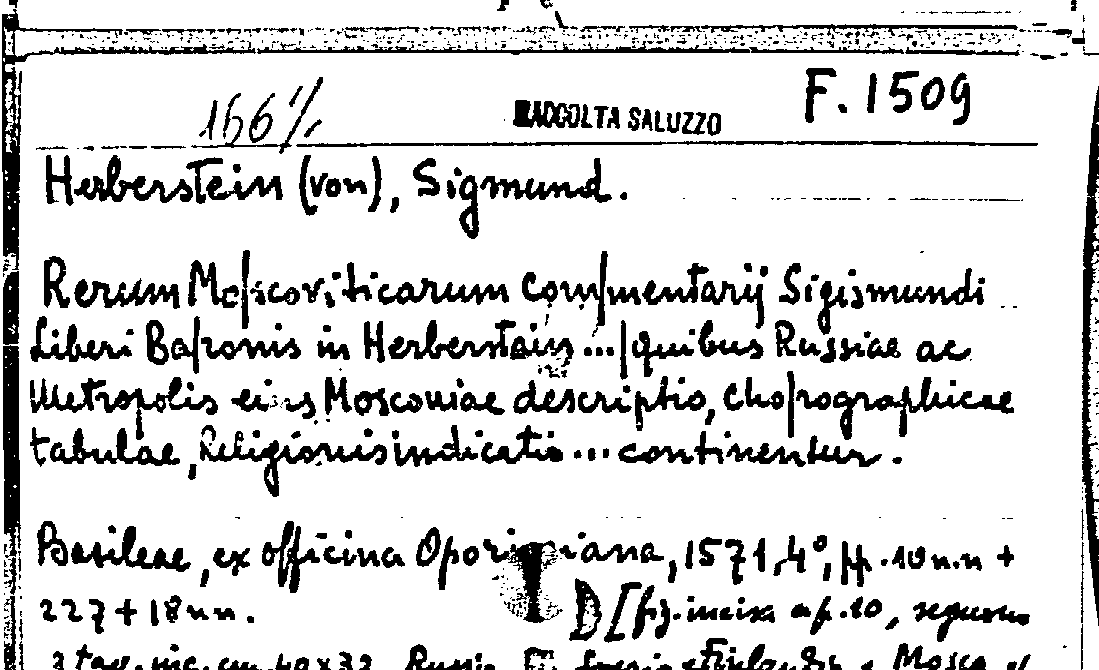 166 1/. RACCOLTA SALUZZO F. 1509
Herberstein (von), Sigmund.
Rerum Mo|scoviticarum Com|mentarij Sigismundi
Liberi Ba|ronis in Herberstain ... | quibus Russiae ac
Metropolis eius Moscoviae descriptio, Cho|rographicae
tabulae, Religionis indicatio ... continentur.
Basileae, ex officina Oporiniana, 1571, 4°, pp. 10 n.n +
227 + 18 nn. D [fig. incisa a p. 10, seguono
3 tav. inc. cm. 40x32 Russia